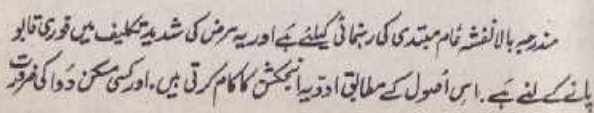 مندرجہ بالا نقشہ عام مبتدی کی رہنمائی کیلئے ہے اور یہ مرض کی شدید تکلیف میں فوری قابو
پانے کے لئے ہے۔ اس اُصول کے مطابق ادویہ انجکشن کا کام کرتی ہیں۔ اور کسی مسکن دوا کی ضرورت